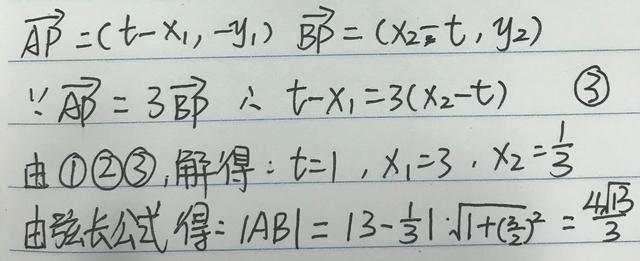 $\overrightarrow{AP}=(t-x_1,-y_1)$ $\overrightarrow{BP}=(x_2-t,y_2)$
∵ $\overrightarrow{AP}=3\overrightarrow{BP}$ ∴ $t-x_1=3(x_2-t)$ ③
由①②③,解得:$t=1$,$x_1=3$,$x_2=\frac{1}{3}$
由弦长公式得:$|AB|=|3-\frac{1}{3}|\cdot\sqrt{1+(\frac{3}{2})^2}=\frac{4\sqrt{13}}{3}$